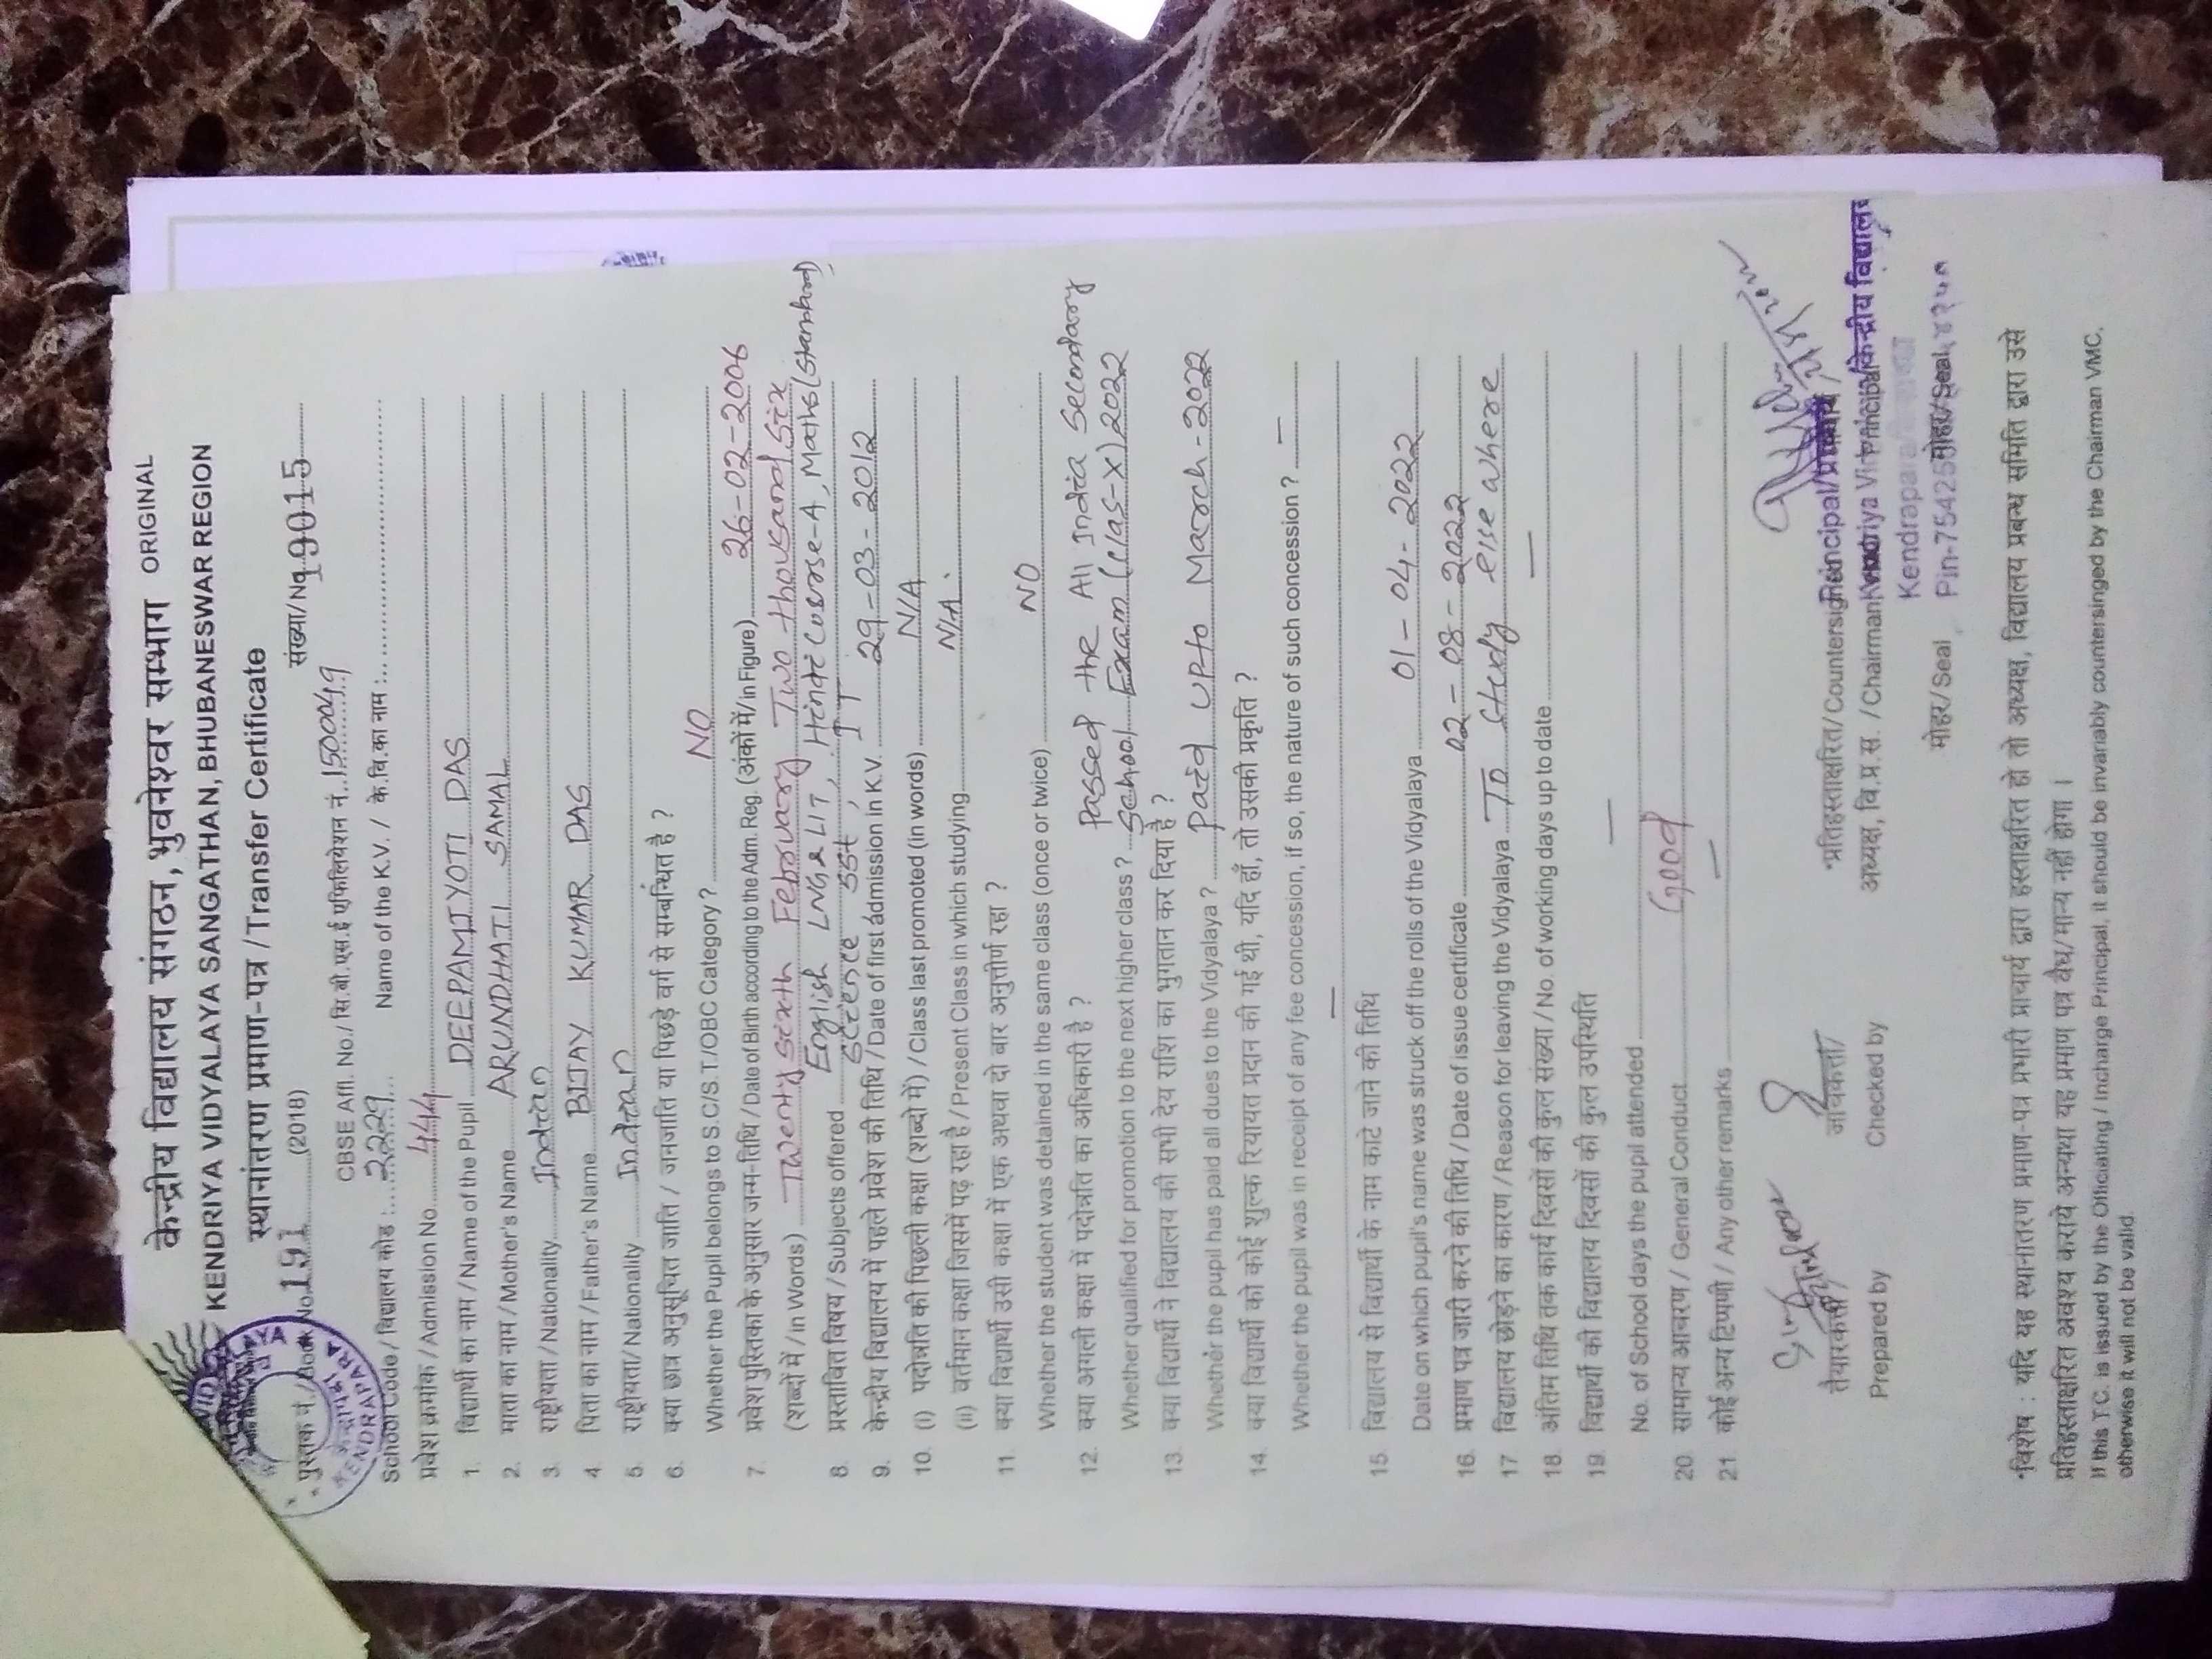 केन्द्रीय विद्यालय संगठन, भुवनेश्वर सम्भाग ORIGINAL
KENDRIYA VIDYALAYA SANGATHAN, BHUBANESWAR REGION
स्थानांतरण प्रमाण-पत्र / Transfer Certificate
पुस्तक नं. / Book No. 191 (2018) संख्या/No. 19015
CBSE Affl. No./ सि.बी.एस.ई एफिलियेशन नं. 1500049
School Code / विद्यालय कोड : 2229 Name of the K.V. / के.वि.का नाम :
प्रवेश क्रमांक / Admission No. 444
1. विद्यार्थी का नाम / Name of the Pupil DEEPAMJYOTI DAS
2. माता का नाम / Mother's Name ARUNDHATI SAMAL
3. राष्ट्रीयता / Nationality Indian
4. पिता का नाम / Father's Name BIJAY KUMAR DAS
5. राष्ट्रीयता/ Nationality Indian
6. क्या छात्र अनुसूचित जाति / जनजाति या पिछड़े वर्ग से सम्बन्धित है ?
Whether the Pupil belongs to S.C/S.T./OBC Category? NO
7. प्रवेश पुस्तिका के अनुसार जन्म-तिथि / Date of Birth according to the Adm. Reg. (अंकों में/in Figure) 26-02-2006
(शब्दों में / in Words) Twenty sixth February Two thousand Six
English LNG & LIT, Hindi Course-A, Maths (Standard)
8. प्रस्तावित विषय / Subjects offered Science SST, IT
9. केन्द्रीय विद्यालय में पहले प्रवेश की तिथि / Date of first admission in K.V. 29-03-2012
10. (i) पदोन्नति की पिछली कक्षा (शब्दों में) / Class last promoted (in words) N/A
(ii) वर्तमान कक्षा जिसमें पढ़ रहा है / Present Class in which studying N/A.
11. क्या विद्यार्थी उसी कक्षा में एक अथवा दो बार अनुत्तीर्ण रहा ?
Whether the student was detained in the same class (once or twice) NO
12. क्या अगली कक्षा में पदोन्नति का अधिकारी है ? Passed the All India Secondary
Whether qualified for promotion to the next higher class ? School Exam (Clas-X) 2022
13. क्या विद्यार्थी ने विद्यालय की सभी देय राशि का भुगतान कर दिया है ?
Whether the pupil has paid all dues to the Vidyalaya ? Paid UPto March-2022
14. क्या विद्यार्थी को कोई शुल्क रियायत प्रदान की गई थी, यदि हाँ, तो उसकी प्रकृति ?
Whether the pupil was in receipt of any fee concession, if so, the nature of such concession ? —
—
15. विद्यालय से विद्यार्थी के नाम काटे जाने की तिथि
Date on which pupil's name was struck off the rolls of the Vidyalaya 01-04-2022
16. प्रमाण पत्र जारी करने की तिथि / Date of issue certificate 02-08-2022
17 विद्यालय छोड़ने का कारण / Reason for leaving the Vidyalaya To Study else where
18. अंतिम तिथि तक कार्य दिवसों की कुल संख्या / No. of working days up to date —
19. विद्यार्थी की विद्यालय दिवसों की कुल उपस्थिति —
No. of School days the pupil attended
20. सामान्य आचरण / General Conduct Good
21. कोई अन्य टिप्पणी / Any other remarks —
तैयारकर्ता/ जांचकर्ता/ *प्रतिहस्ताक्षरित/ Countersigned Principal/प्राचार्य/
Prepared by Checked by अध्यक्ष, वि.प्र.स. / Chairman Kendriya Vidyalaya/केन्द्रीय विद्यालय
Kendrapara
मोहर/Seal मोहर/Seal
*विशेष : यदि यह स्थानांतरण प्रमाण-पत्र प्रभारी प्राचार्य द्वारा हस्ताक्षरित हो तो अध्यक्ष, विद्यालय प्रबन्ध समिति द्वारा उसे
प्रतिहस्ताक्षरित अवश्य कराये अन्यथा यह प्रमाण पत्र वैध/मान्य नहीं होगा ।
If this T.C. is issued by the Officiating / Incharge Principal, it should be invariably countersinged by the Chairman VMC.
otherwise it will not be valid.